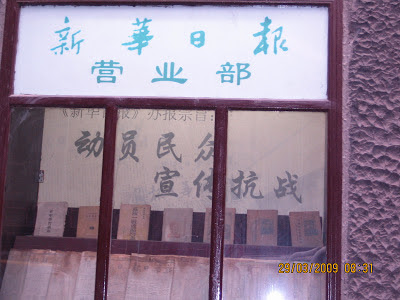 新華日報
营业部
《新华日报》办报宗旨：
动员民众
宣传抗战
29/03/2009 09:31